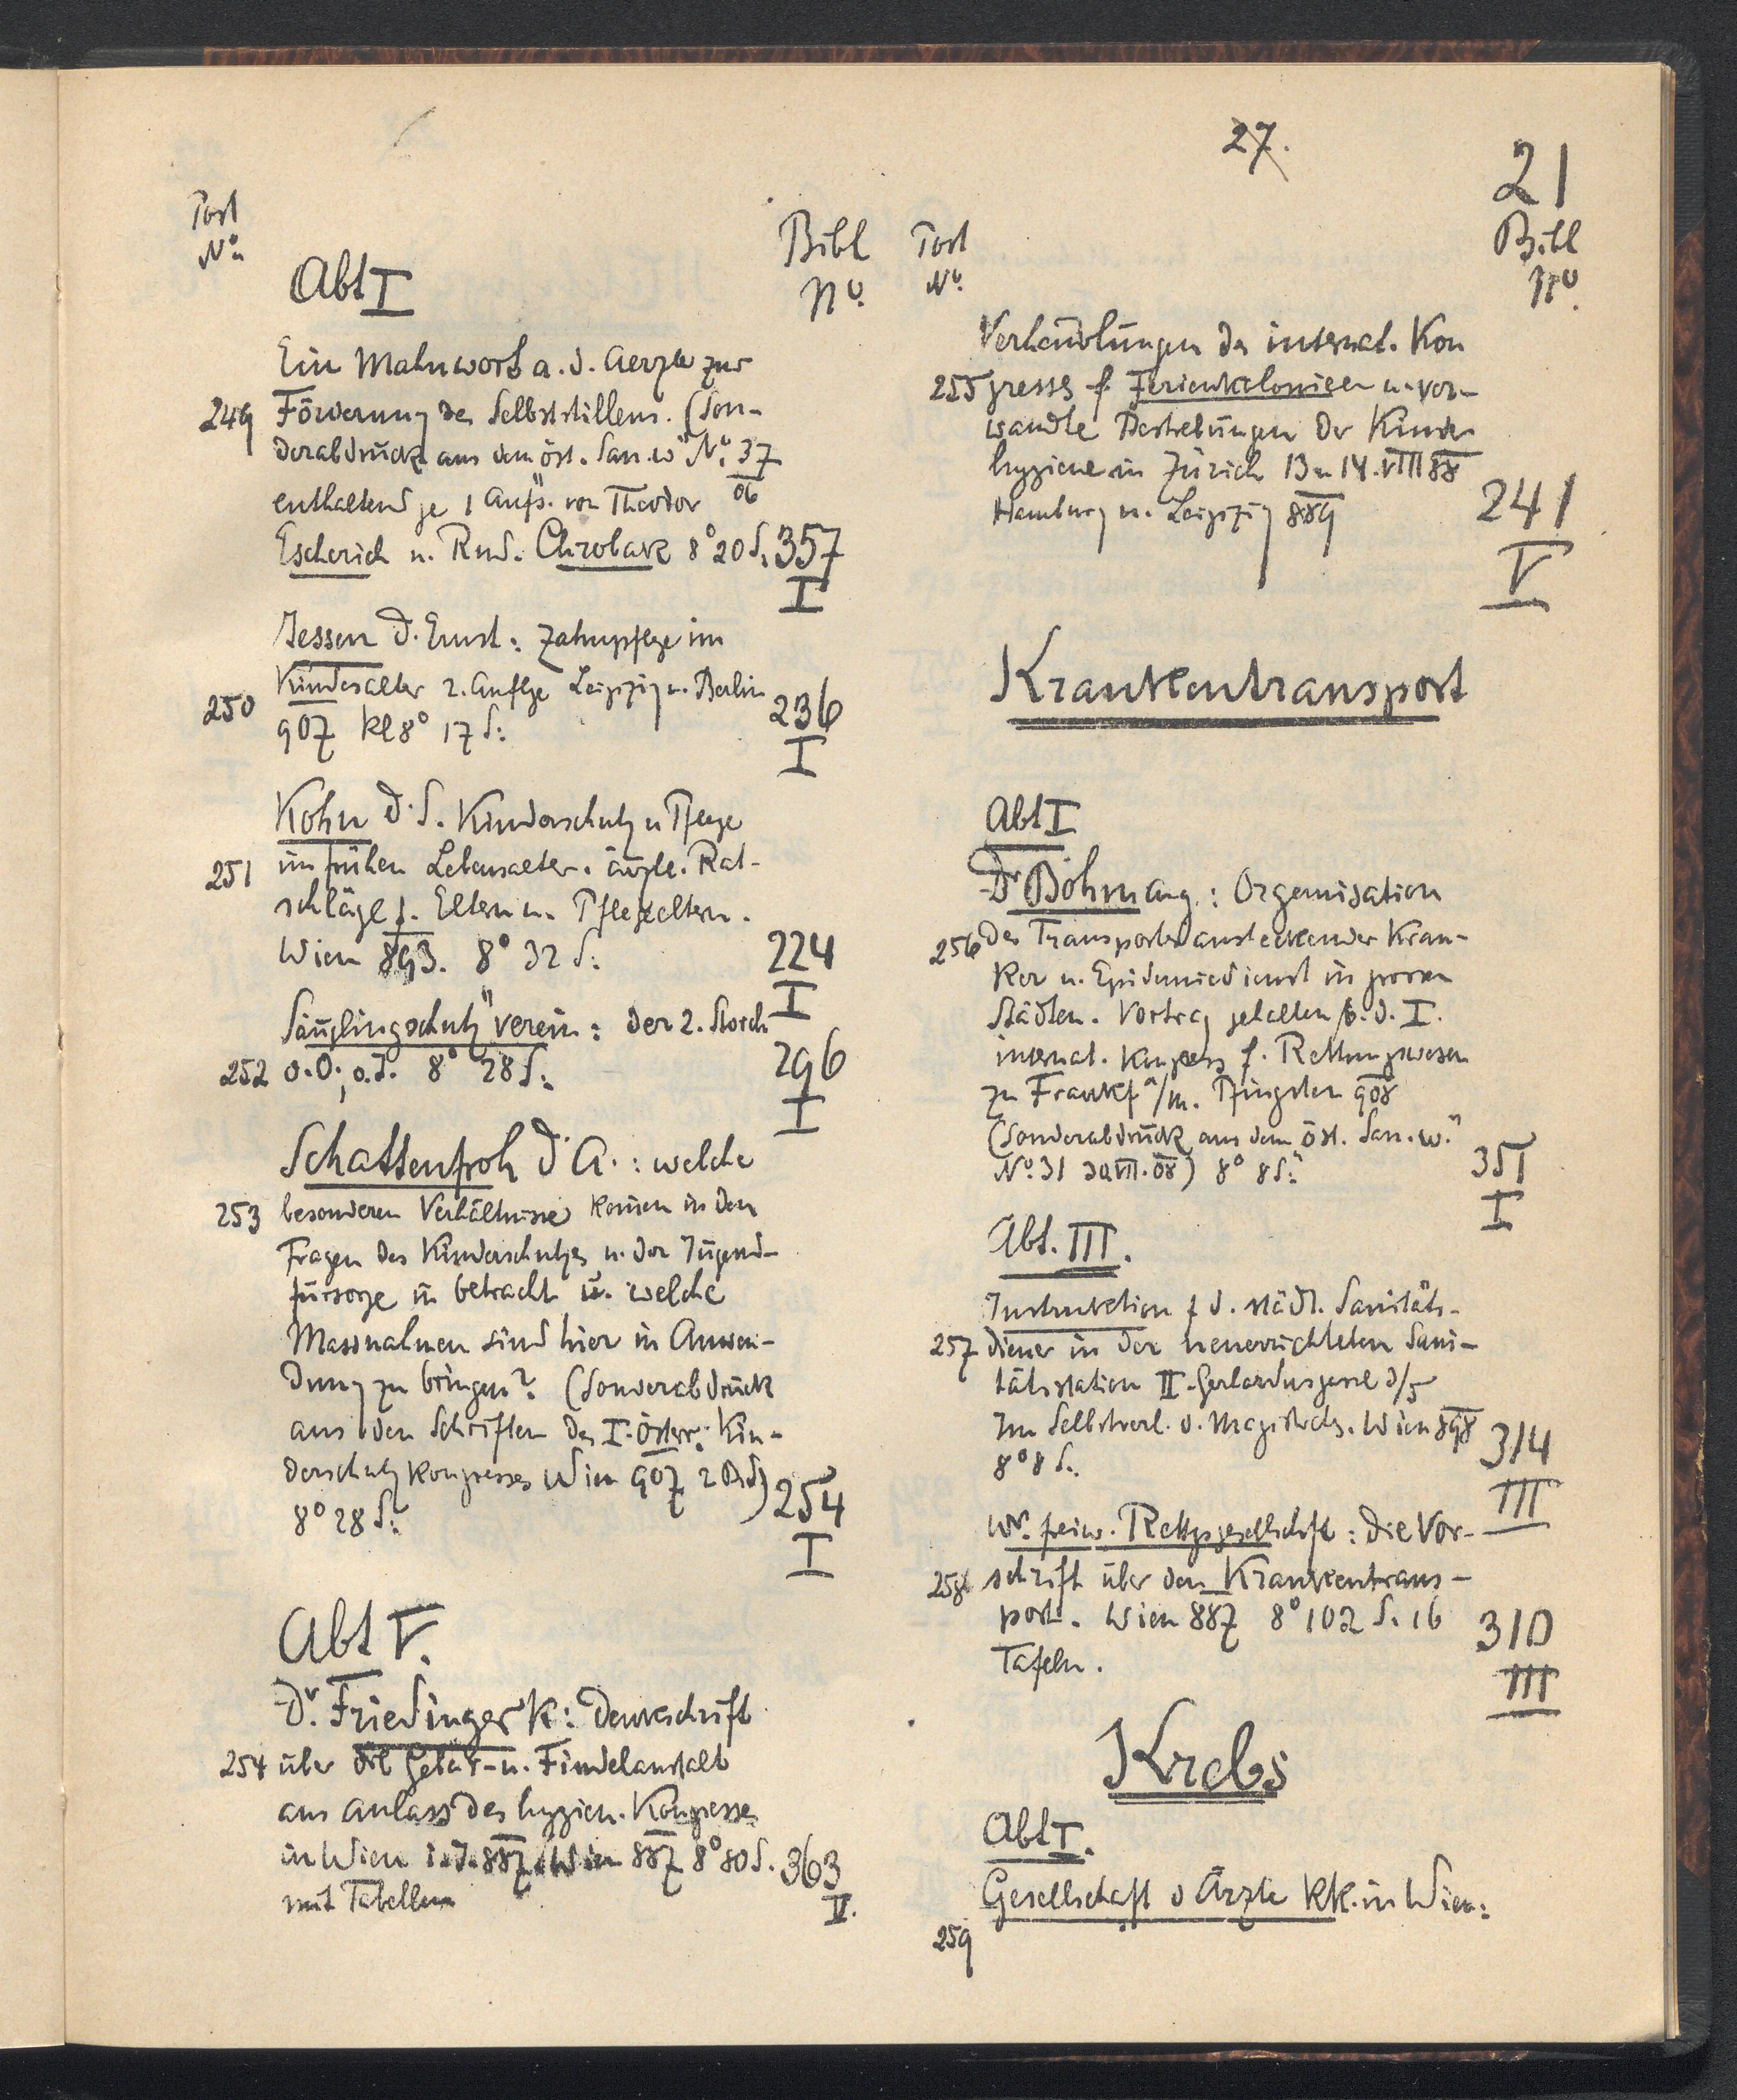 27.
21
Post
No.
Bibl
No.
Abt I
Ein Mahnwort a. d. Aerzte zur
249 Förderung des Selbststillens. (Son-
derabdruck aus dem öst. San. w" No. 37
06
enthaltend je 1 Aufs. von Theodor
Escherich u. Rud. Chrobak 8° 20 S. 357
I
Jessen D. Ernst: Zahnpflege im
Kindesalter 2. Auflge Leipzig u. Berlin
250
907 Kl 8° 17 S.
236
I
Kohn D. S. Kinderschutz u Pflege
251 im frühen Lebensalter. ärztl. Rat-
schläge f. Eltern u. Pflegeeltern.
Wien 893. 8° 32 S.
224
I
Säuglingsschutz" verein: Der 2. Storch
252 o. O., o. J. 8° 28 S.
296
I
Schattenfroh D A.: welche
253 besonderen Verhältnisse komen in den
Fragen des Kinderschutzes u. der Jugend-
fürsorge in betracht u. welche
Massnahmen sind hier in Anwen-
dung zu bringen? (Sonderabdruck
aus den Schriften des I. Österr. Kin-
derschutz Kongresses Wien 907 2 Bd) 254
8° 28 S.
I
Abt V.
Dr. Friedinger K: Denkschrift
254 über die Gebär- u. Findelanstalt
aus Anlass des hygien. Kongresses
in Wien i. J. 887. Wien 887 8° 80 S. 363
mit Tabellen
V.
Post
No.
Bibl
No.
Verhandlungen des internat. Kon
255 gresses f. Ferienkolonieen u. ver-
wandte Bestrebungen der Kinder
hygiene in Zürich 13 u 14. VIII 88
Hamburg u. Leipzig 889
241
V
Krankentransport
Abt I
Dr Böhm Aug.: Organisation
256 des Transportes ansteckender Kran-
ker u. Epidemiedienst in grossen
Städten. Vortrag gehalten b. d. I.
internat. Kongress f. Rettungswesen
zu Frankf a/m. Pfingsten 908
(Sonderabdruck aus dem öst. San. w."
No. 31 30 VII. 08) 8° 8 S.
351
I
Abt. III.
Instruktion f d. städt. Sanitäts-
257 diener in der neuerrichteten Sani-
tätsstation II. Gerhardusgasse 3/5
Im Selbstverl. d. Magistrats. Wien 898
8° 8 S.
314
III
Wr. freiw. Rettgsgesellschaft: Die Vor-
258 schrift über den Krankentrans-
port. Wien 887 8° 102 S. 16
Tafeln.
310
III
Krebs
Abt I.
Gesellschaft d Ärzte KK. in Wien:
259